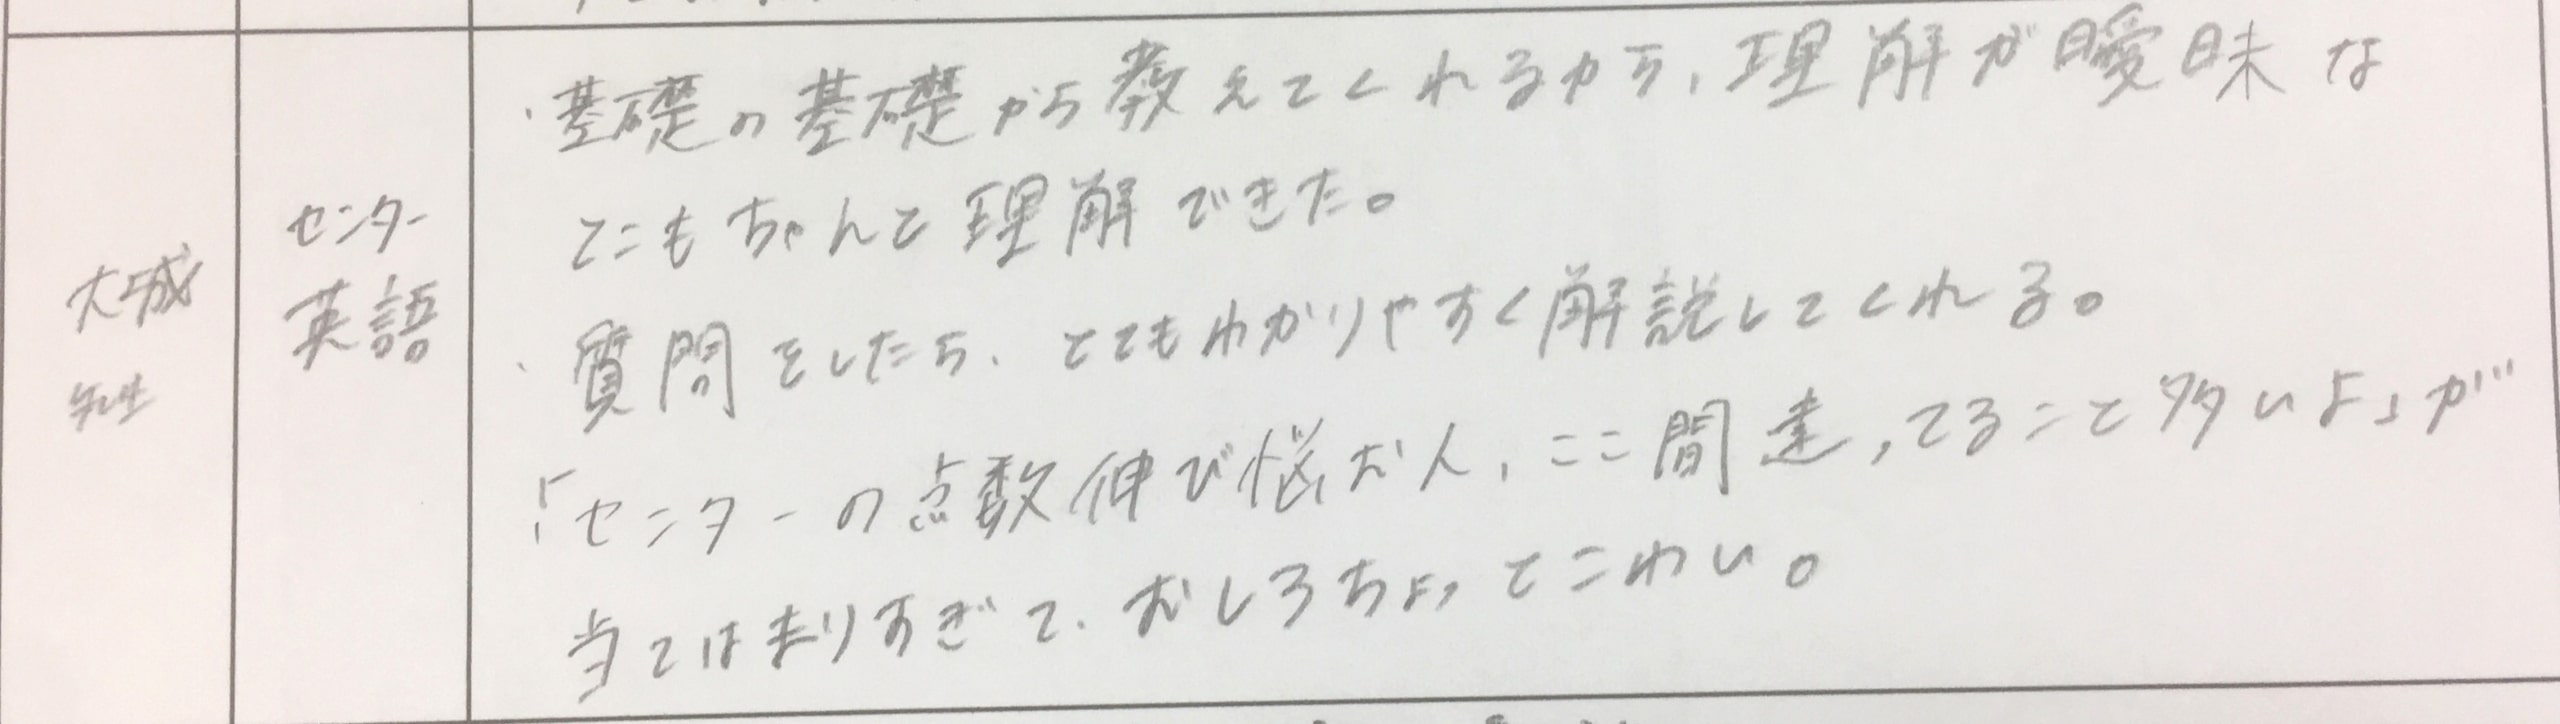 大成
先生
センター
英語
・基礎の基礎から教えてくれるから、理解が曖昧な
とこもちゃんと理解できた。
・質問をしたら、とてもわかりやすく解説してくれる。
・「センターの点数伸び悩む人、ここ間違ってること多いよ」が
当てはまりすぎて、むしろちょっとこわい。